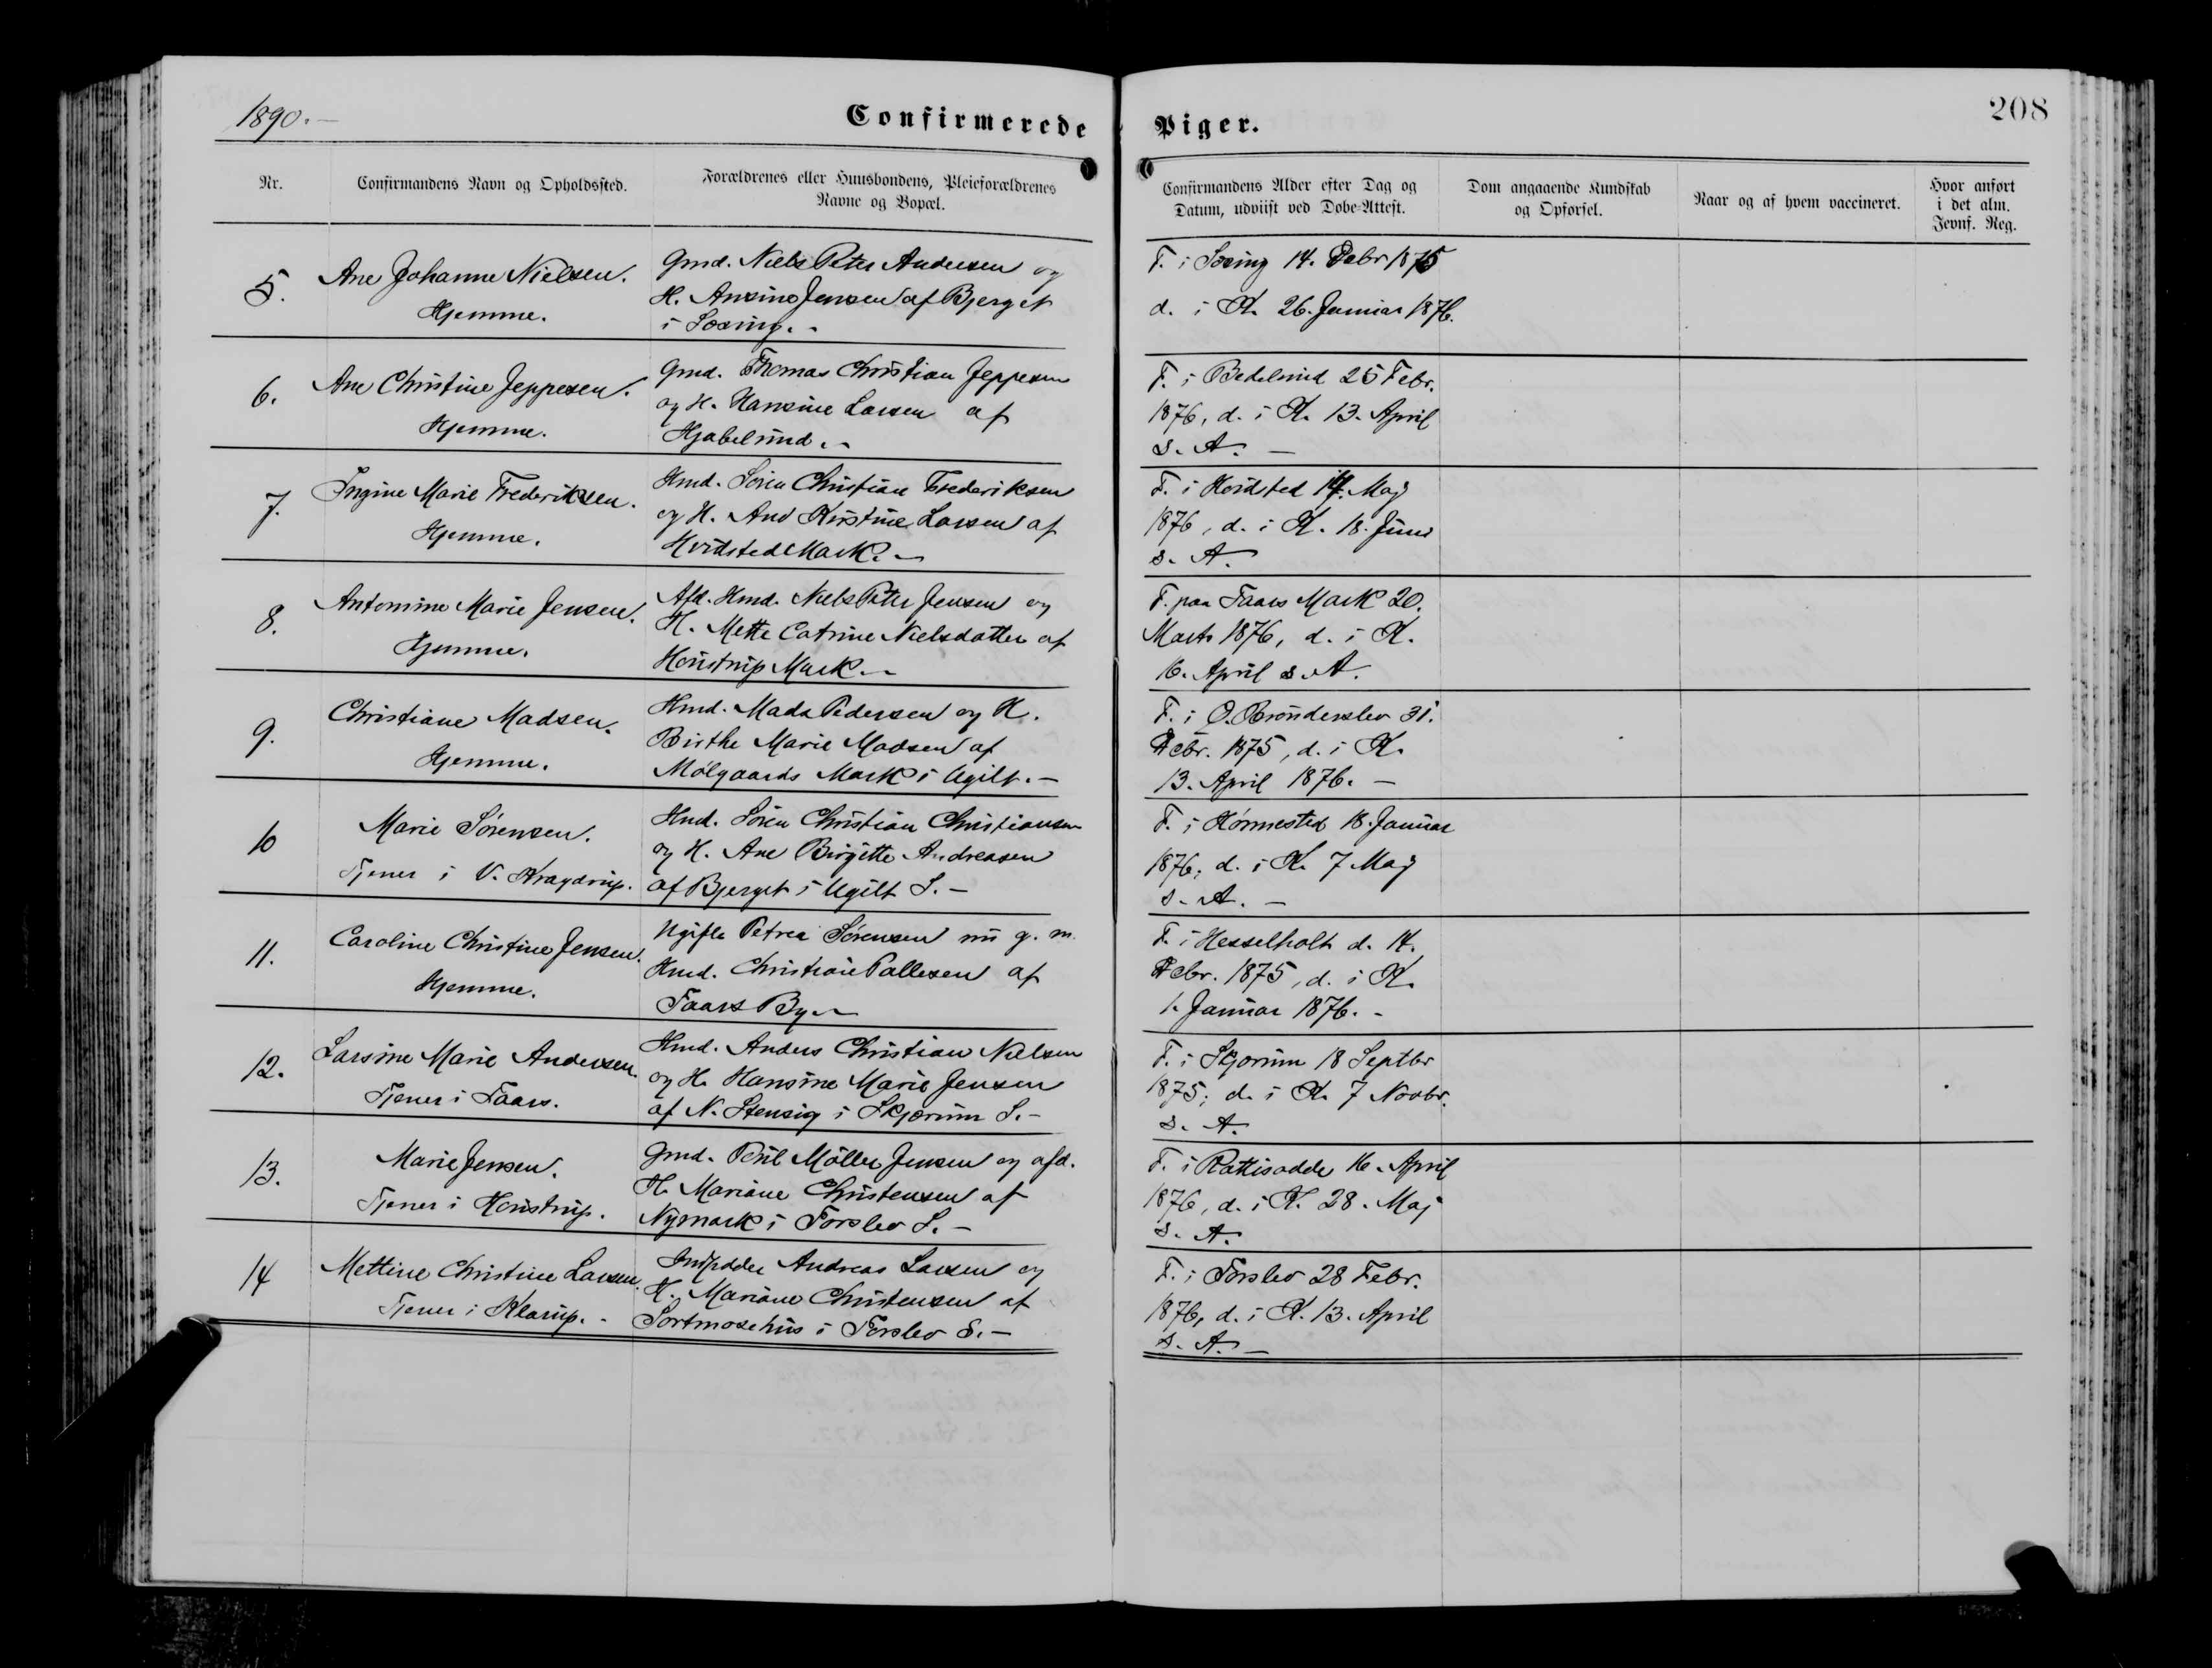 1890.—
Confirmerede Piger.
208
Nr.
Confirmandens Navn og Opholdssted.
Forældrenes eller Huusbondens, Pleieforældrenes
Navne og Bopæl.
Confirmandens Alder efter Dag og
Datum, udviist ved Døbe-Attest.
Dom angaaende Kundskab
og Opførsel.
Naar og af hvem vaccineret.
Hvor anført
i det alm.
Jevnf. Reg.
5.
Ane Johanne Nielsen.
Hjemme.
Gmd. Niels Peter Andersen og
H. Ansine Jensen af Bjerget
i Sæsing.
F. i Sæsing 14. Debr 1875
d. i K. 26. Januar 1876.
6.
Ane Christine Jeppesen.
Hjemme.
Gmd. Thomas Christian Jeppesen
og H. Hansine Larsen af
Hjabelund.
F. i 25 Febr.
1876, d. i K. 13. April
s. A. —
7.
Ingine Marie Frederiksen.
Hjemme.
Hmd. Søren Christian Frederiksen
og H. Ane Kirstine Larsen af
Hvidsted Mark.
F. i Hvidsted 14. Maj
1876, d. i K. 18. Juni
s. A.
8.
Antomine Marie Jensen.
Hjemme.
Afd. Hmd. Niels Peter Jensen og
H. Mette Catrine Nielsdatter af
Hvustrup Mark.
F. paa Taars Mark 20.
Marts 1876, d. i K.
16. April s. A.
9.
Christiane Madsen.
Hjemme.
Hmd. Mads Pedersen og H.
Birthe Marie Madsen af
Mølgaards Mark i Ugilt. —
F. i Ø. Brønderslev 31.
Debr. 1875, d. i K.
13. April 1876. —
10
Marie Sørensen.
Tjener i V. Kragdrup.
Hmd. Søren Christian Christiansen
og H. Ane Birgitte Andreasen
af Bjerget i Ugilt S. —
F. i Hørmested 18. Januar
1876, d. i K. 7 Maj
s. A. —
11.
Caroline Christine Jensen.
Hjemme.
Ugifte Petrea Sørensen nu g. m.
Hmd. Christian Pallesen af
Taars By.
F. i Hesselholt d. 14.
Debr. 1875, d. i K.
1. Januar 1876. -
12.
Larsine Marie Andersen.
Tjener i Taars.
Hmd. Anders Christian Nielsen
og H. Hansine Marie Jensen
af N. Stensig i Skjærum S. —
F. i Skjærum 18 Septbr
1875; d. i K. 7 Novbr.
s. A.
13.
Marie Jensen.
Tjener i Hvustrup.
Gmd. Poul Møller Jensen og afd.
H. Mariane Christensen af
Nymark i Torslev S. —
F. i 16. April
1876, d. i K. 28. Maj
s. A.
14
Mettine Christine Larsen.
Tjener i Klarup. -
Indsidder Andreas Larsen og
H. Mariane Christensen af
Sortmosehus i Torslev S. —
F. i Torslev 28 Febr.
1876, d. i K. 13. April
s. A. —